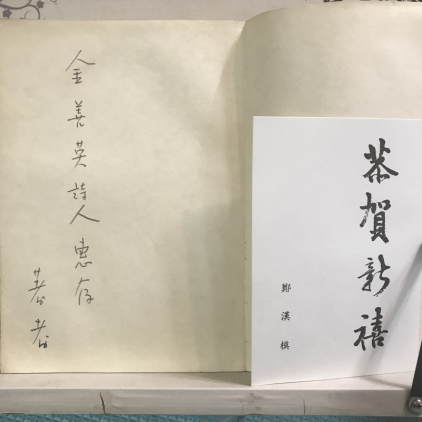 金善英詩人惠存
著者
恭賀新禧
鄭漢模